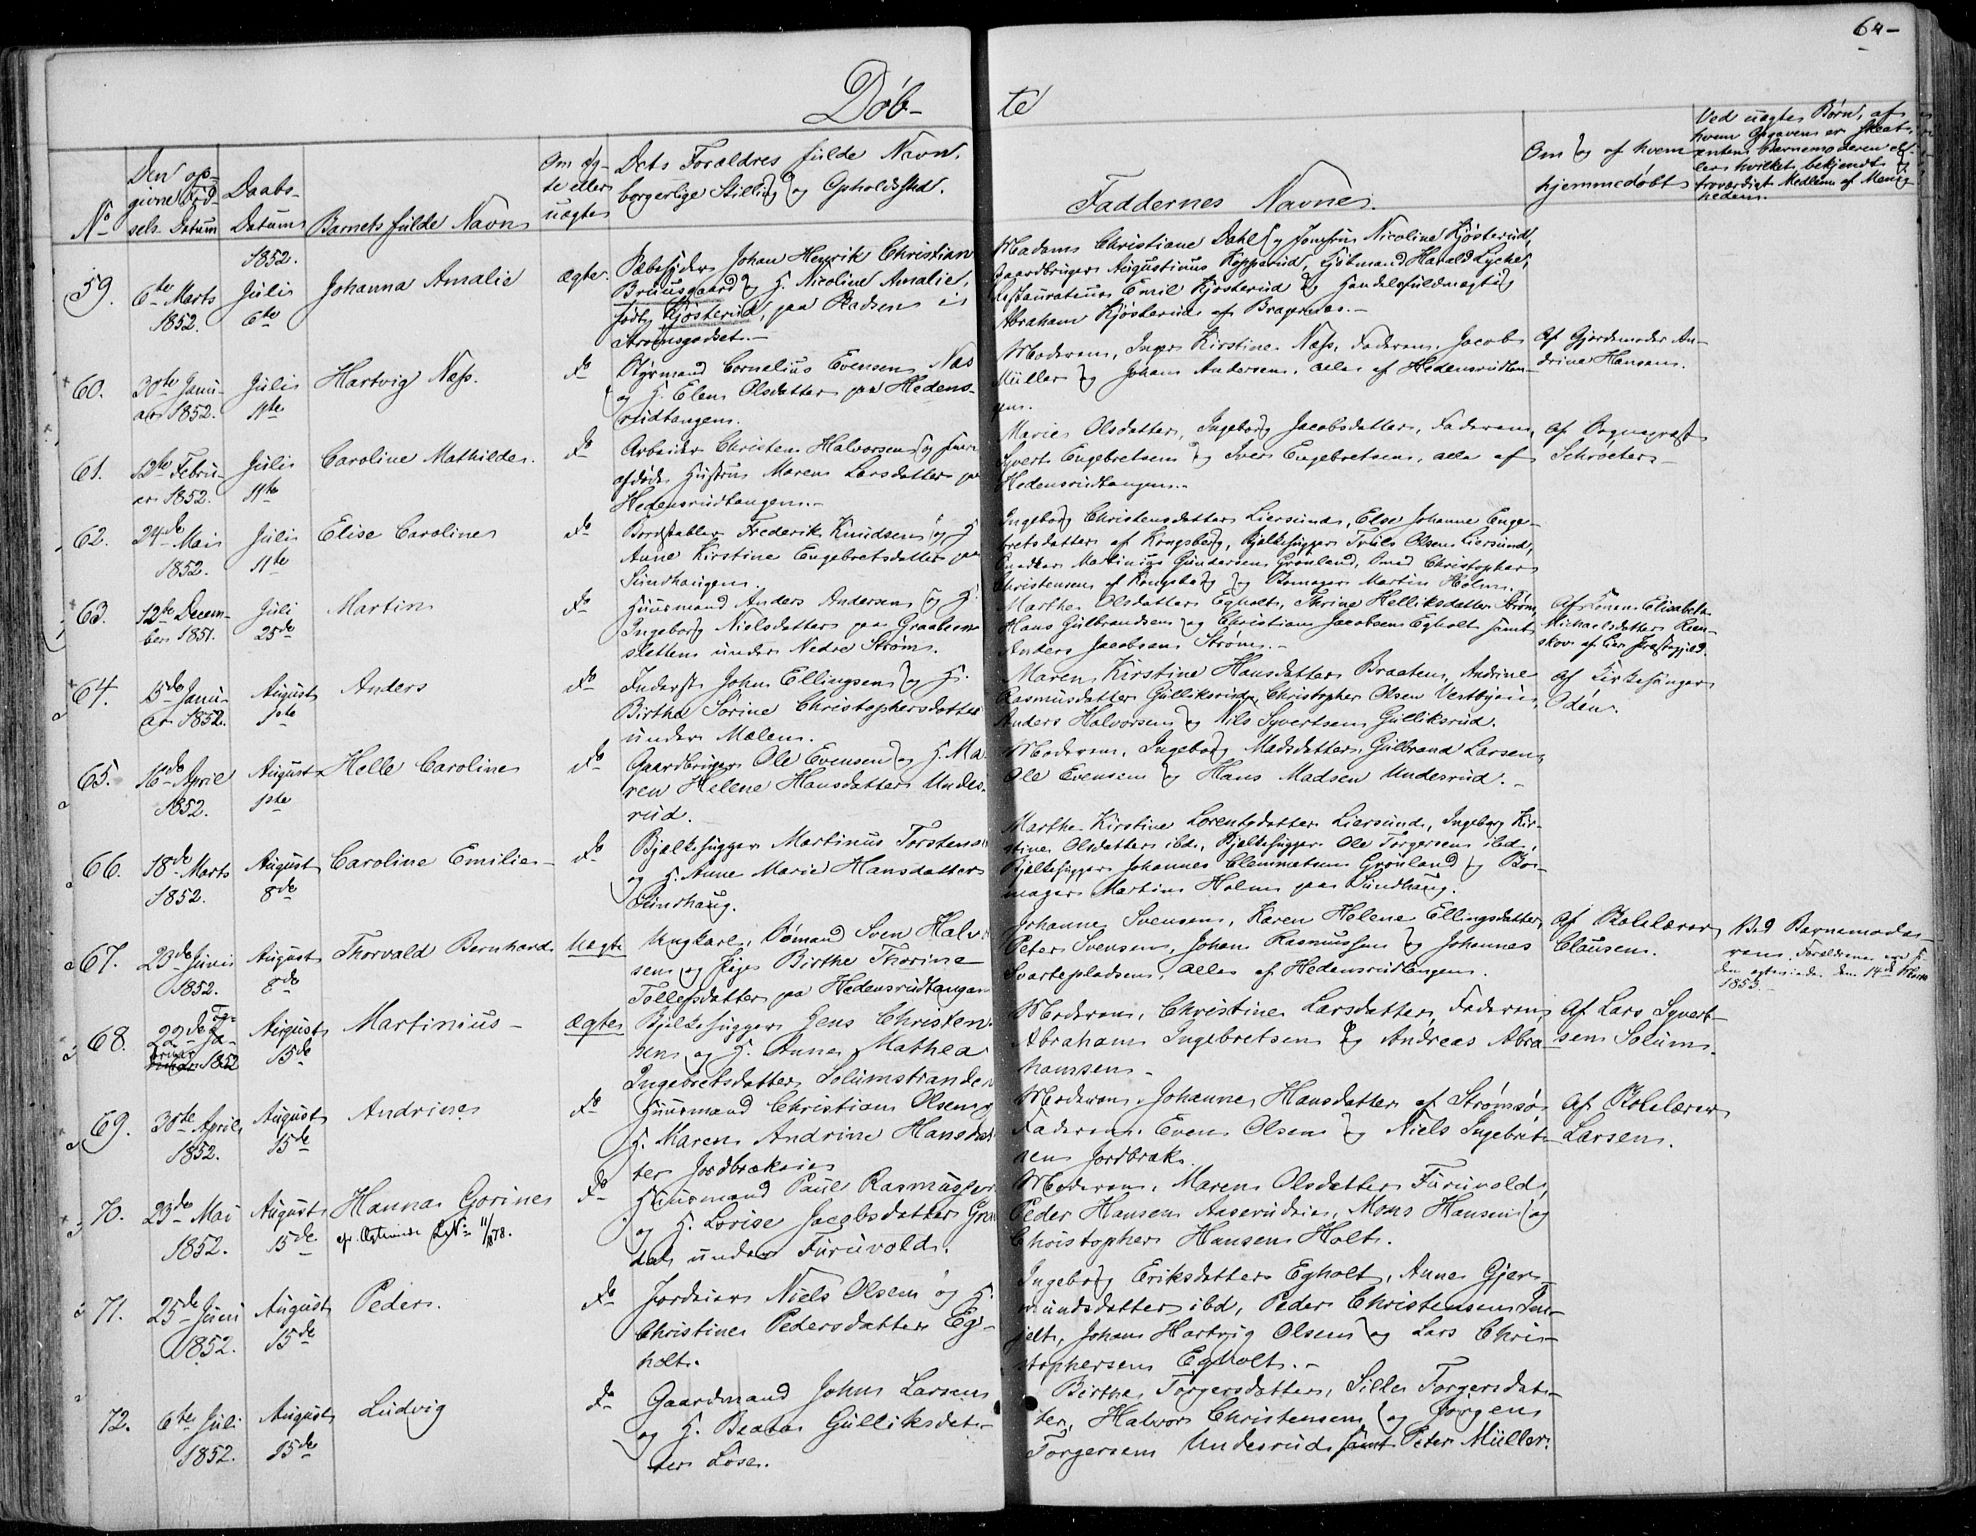 64-
Døb-
te
No
Den op-
givne Fød-
sels Datum
Daabs-
Datum
Barnets fulde Navn
Om æg-
te eller
uægte
Dets Forældres fulde Navn,
borgerlige Stilling og Opholdssted.
Faddernes Navne.
Om og af hvem
hjemmedøbt
Ved uægte Børn, af
hvem Opgaven er skeet,
enten Barnemoderen el-
ler hvilket bekjendt og
troværdigt Medlem af Menig-
heden.
1852.
59.
6te Marts
1852.
Juli
6te
Johanna Amalie
ægte.
Sæbesyder Johan Henrik Christian
Bruusgaard og H. Nicoline Amalie,
født Kjøsterud, paa Pladsen i
Strømsgodset.-
Madame Christiane Dahl og Jomfru Nicoline Kjøsterud,
Gaardbruger Augustinus Kopperud, Handelsfuldmægtig
Abraham Kjøsterud af Bragernes.-
60.
30te Janu-
ar 1852.
Juli
11te
Hartvig Næss.
do
Styrmand Cornelius Evensen Næs
og H. Elen Olsdatter paa Hedens-
rudtangen.
Moderen, Inger Kirstine Næss, Faderen, Jacob
Müller og Johan Andersen, alle af Hedensrudtan-
gen.
Af Gjordemoder An-
drine Hansen.
61.
12te Febru-
ar 1852.
Juli
11te
Caroline Mathilde.
do
Arbeider Christen Halvorsen og hans
afdøde Hustru Maren Larsdatter paa
Hedensrudtangen.-
Marie Olsdatter, Ingeborg Jacobsdatter, Faderen,
Syvert Engebretsen og Iver Engebretsen, alle af
Hedensrudtangen.-
Af Sognepræst
Schrøeter.-
62.
24de Mai
1852.
Juli
11te
Elise Caroline
do
Bordstabler Frederik Knudsen og H.
Anne Kirstine Engebretsdatter paa
Sundhaugen.
Ingeborg Christensdatter Liersund, Else Johanne Enge-
bretsdatter af Kongsberg, Bjelkehugger Truls Olsen Liersund,
Snedker Martinius Gundersen Grønland, Smed Christopher
Christensen af Kongsberg og Skomager Martin Holm.
63.
12te Decem-
ber 1851.
Juli
25de
Martin
do
Huusmand Anders Andersen og H.
Ingeborg Nielsdatter paa Graabein-
sletten under Nedre Strøm.
Marthe Olsdatter Egholt, Thrine Helliksdatter Strøm,
Hans Gulbrandsen og Christian Jacobsen Egholt samt
Anders Jacobsen Strøm.-
Af Konen Elisabeth
Michaelsdatter Rien-
skov af Lier Præstegjeld.
64.
15de Janu-
ar 1852.
August
1ste
Anders
do
Inderst John Ellingsen og H.
Birthe Sorine Christophersdatter
under Mælen.
Maren Kirstine Hansdatter Braaten, Andrine
Rasmusdatter Gulliksrud, Christopher Olsen Vestbyeie,
Anders Halvorsen og Nils Syvertsen Gulliksrud.
Af Kirkesanger
Odén.
65.
16de April
1852.
August
1ste
Helle Caroline
do
Gaardbruger Ole Evensen og H. Ma-
ren Helene Hansdatter Undes-
rud.
Moderen, Ingeborg Madsdatter, Gulbrand Larsen,
Ole Evensen og Hans Madsen Undesrud.-
66.
18de Marts
1852.
August
8de
Caroline Emilie-
do
Bjælkehugger Martinus Torstensen
og H. Anne Marie Hansdatter
Sundhaug.
Marthe Kirstine Lorentsdatter Liersund, Ingeborg Kir-
stine Olsdatter ibd., Bjelkehugger Ole Torgersen ibd.,
Bjelkehugger Johannes Clemmetsen Grønland og Sko-
mager Martin Holm paa Sundhaug.
67.
23de Juni
1852.
August
8de
Thorvald Bernhard
Uægte
Ungkarl, Sømand Sven Halv-
sen og Pige Birthe Thorine
Tollefsdatter paa Hedensrudtangen
Johanne Svensen, Karen Helene Ellingsdatter,
Peter Svensen, Johan Rasmussen og Johannes
Svartepladsen, alle af Hedensrudtangen.
Af Skolelærer
Clausen.
Ved Barnemode-
ren. Forældrene ere H.
den ægteviede den 14de Marts
1853.-
68.
22de Fe-
bruar
1852
August
15de
Martinius-
Ægte
Bjelkehugger Jens Christen-
sen og H. Anne Mathea
Ingebretsdatter Solumstranden
Moderen, Christine Larsdatter, Faderen,
Abraham Ingebretsen og Andreas Abra-
hamsen-
Af Lars Syvert-
sen Solum.
69.
30te April
1852.
August
15de
Andrine
do
Huusmand Christian Olsen og
H. Maren Andrine Hansdat-
ter Jordbrækeie
Moderen, Johanne Hansdatter af Strømsø,
Faderen, Even Olsen og Niels Ingebret-
sen Jordbræk.
Af Skolelærer
Larsen.
70.
23de Mai
1852.
August
15de.
Hanna Gorine
11/1878.
do
Huusmand Paul Rasmussen
og H. Lovise Jacobsdatter Grøn-
dal under Furuvold.
Moderen, Maren Olsdatter Furuvold,
Peder Hansen Aaserudeie, Mons Hansen og
Christopher Hansen Holt.
71.
25de Juni
1852.
August
15de
Peder.
do
Jordeier Niels Olsen og H.
Christine Pedersdatter Eg-
holt.
Ingeborg Eriksdatter Egholt, Anne Gjer-
mundsdatter ibd, Peder Christensen
Johan Hartvig Olsen og Lars Chri-
stophersen Egholt.-
72.
6te Juli
1852.
August
15de
Ludvig
do
Gaardmand John Larsen
og H. Beate Gulliksdat-
ter Løse.
Birthe Torgersdatter, Sille Torgersdat-
ter, Halvor Christensen og Jørgen
Torgersen Undesrud samt Peter Müller.